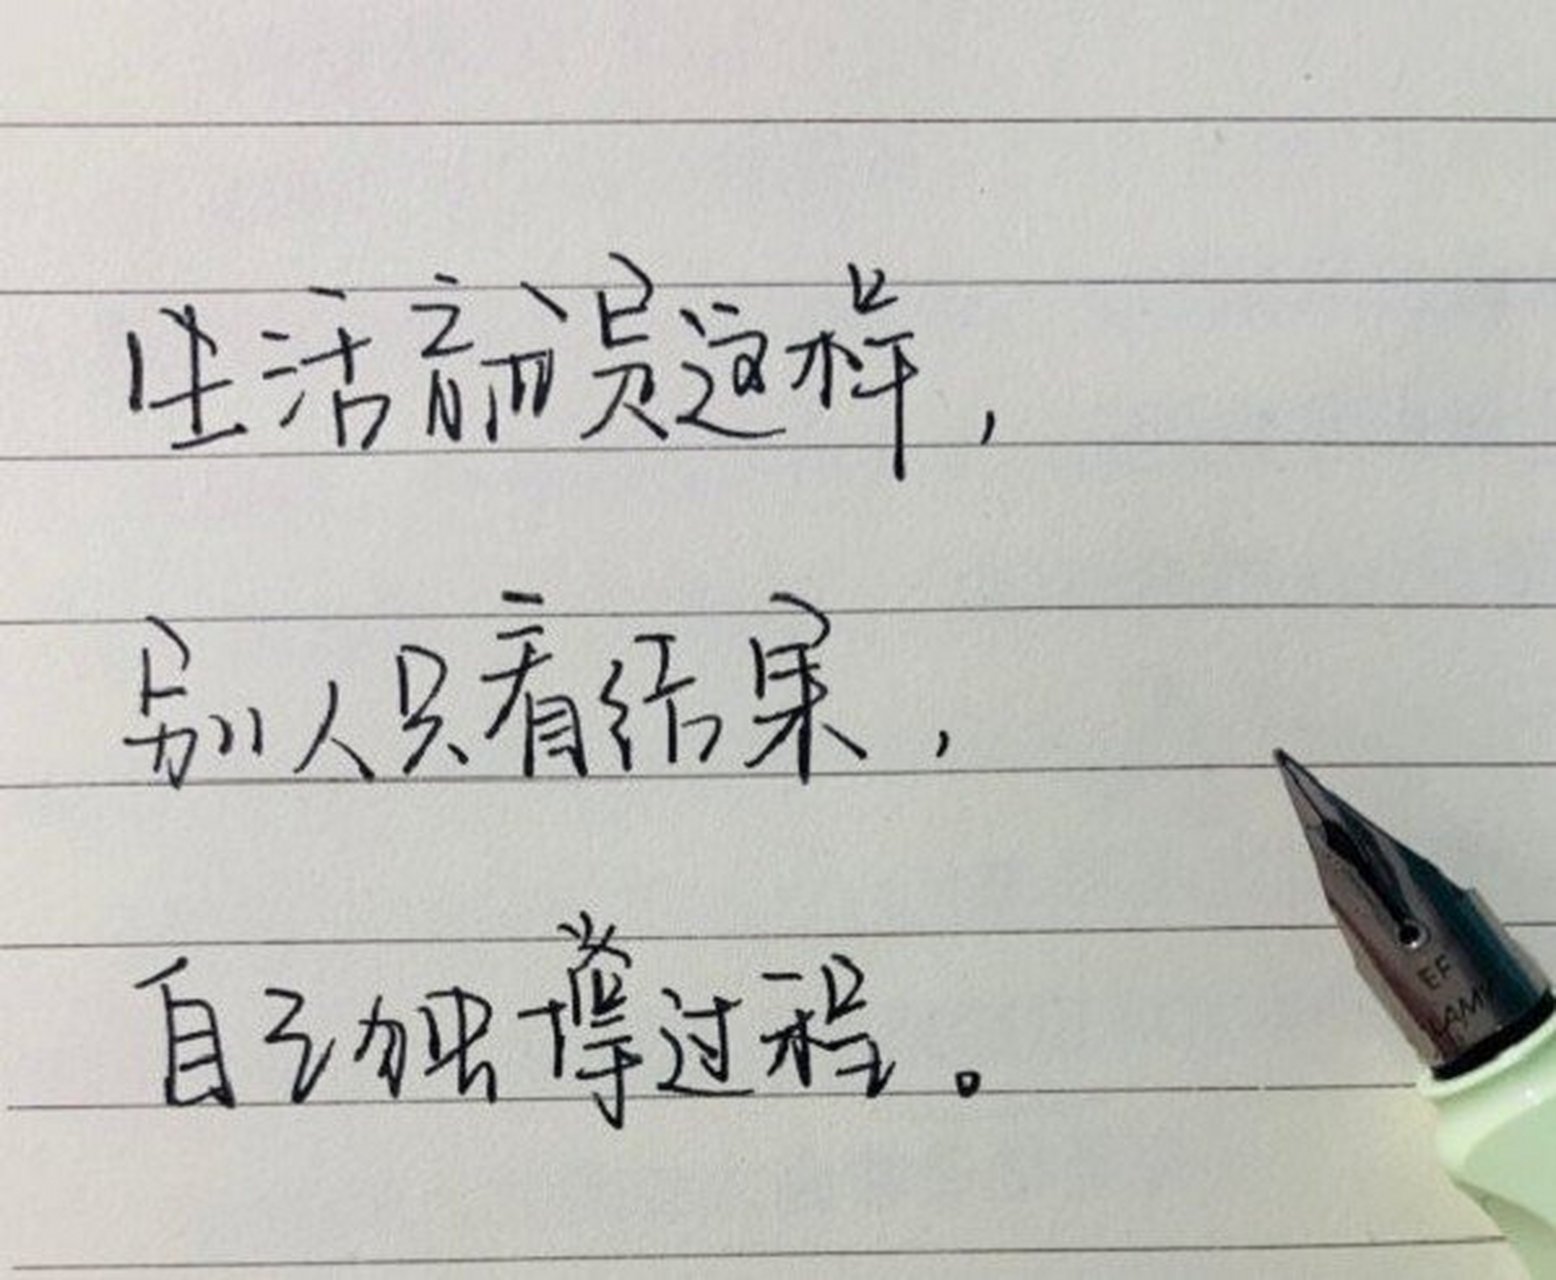 生活就是这样，
别人只看结果，
自己独撑过程。
EF
LAMY